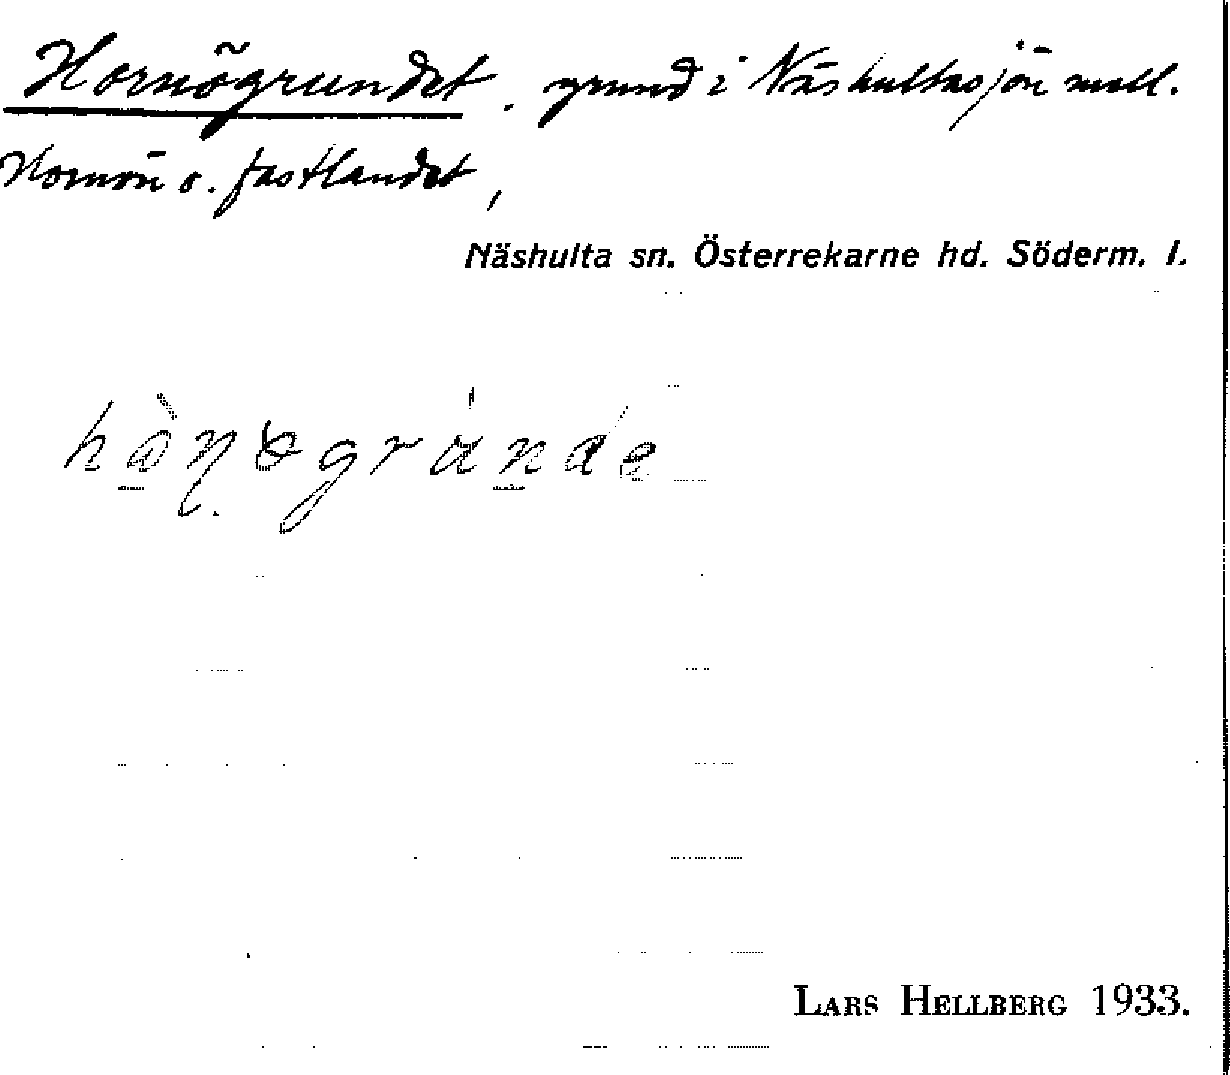 Hornögrundet. grund i Näshultasjön mell.
Hornön o. fastlandet,
Näshulta sn. Österrekarne hd. Söderm. l.
LARS HELLBERG 1933.